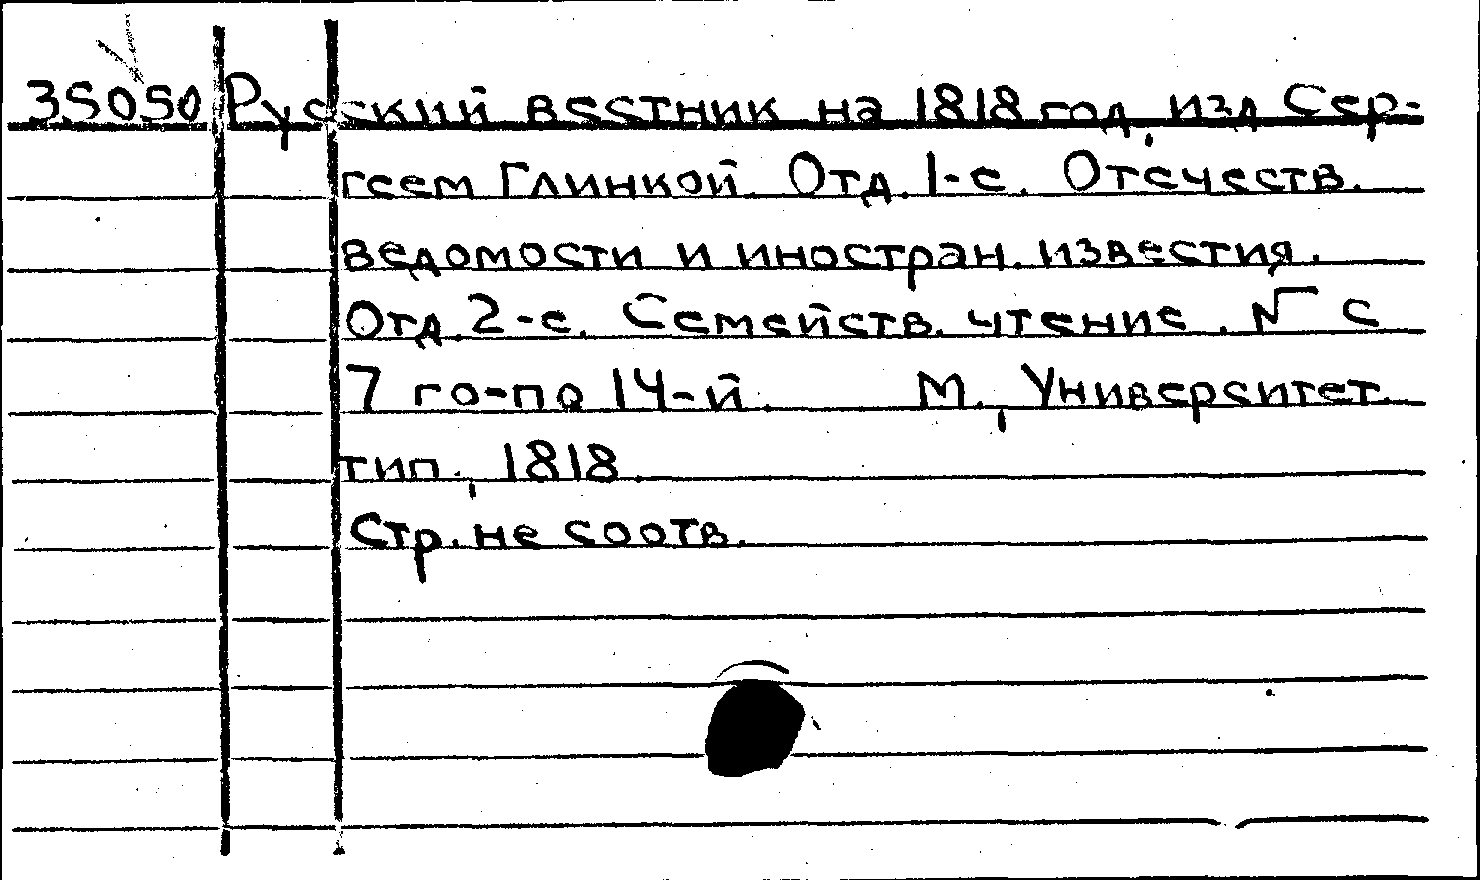 35050 Русский вестник на 1818 год, изд Сер-
геем Глинкой. Отд. 1-е. Отечеств.
ведомости и иностран. известия.
Отд. 2-е. Семейств. чтение. № с
7 го-по 14-й. М., Университет.
тип., 1818.
Стр. не соотв.